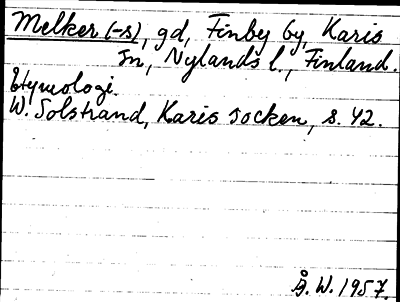 Melker (-s), gd, Finby by, Karis
sn, Nylands l., Finland.
Etymologi.
W. Solstrand, Karis socken, s. 42.
Å. W. 1957.